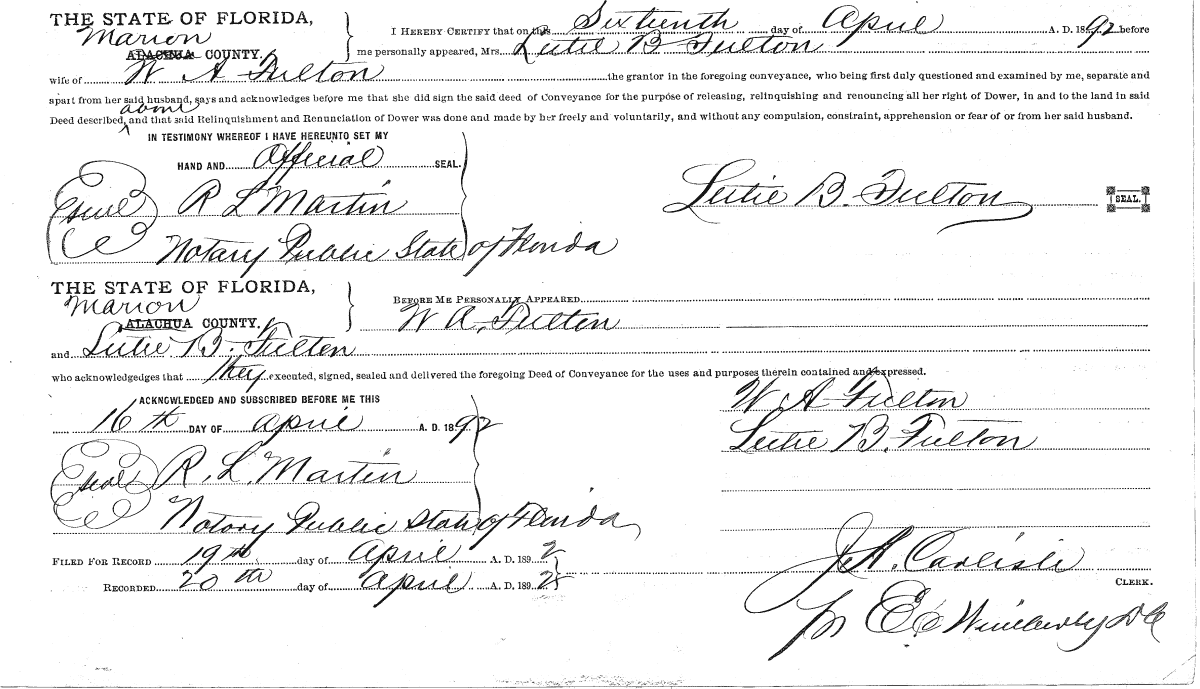 THE STATE OF FLORIDA,
Marion
ALACHUA COUNTY.
I HEREBY CERTIFY that on this Sixteenth day of April A. D. 1892 before
me personally appeared, Mrs. Lutie B Fulton
wife of W A Fulton the grantor in the foregoing conveyance, who being first duly questioned and examined by me, separate and
apart from her said husband, says and acknowledges before me that she did sign the said deed of Conveyance for the purpose of releasing, relinquishing and renouncing all her right of Dower, in and to the land in said
above
Deed described, and that said Relinquishment and Renunciation of Dower was done and made by her freely and voluntarily, and without any compulsion, constraint, apprehension or fear of or from her said husband.
IN TESTIMONY WHEREOF I HAVE HEREUNTO SET MY
HAND AND Official SEAL.
seal R L Martin
Lutie B. Fulton SEAL.
Notary Public State of Florida
THE STATE OF FLORIDA,
Marion
ALACHUA COUNTY.
BEFORE ME PERSONALLY APPEARED
W A. Fulton
and Lutie B. Fulton
who acknowledgedges that they executed, signed, sealed and delivered the foregoing Deed of Conveyance for the uses and purposes therein contained and expressed.
ACKNOWLEDGED AND SUBSCRIBED BEFORE ME THIS
16th DAY OF April A. D. 1892
W A Fulton
Lutie B. Fulton
seal R. L. Martin
Notary Public State of Florida
FILED FOR RECORD 19th day of April A. D. 1892
RECORDED 20th day of April A. D. 1892
J. A. Carlisle
CLERK.
Wimberly DC